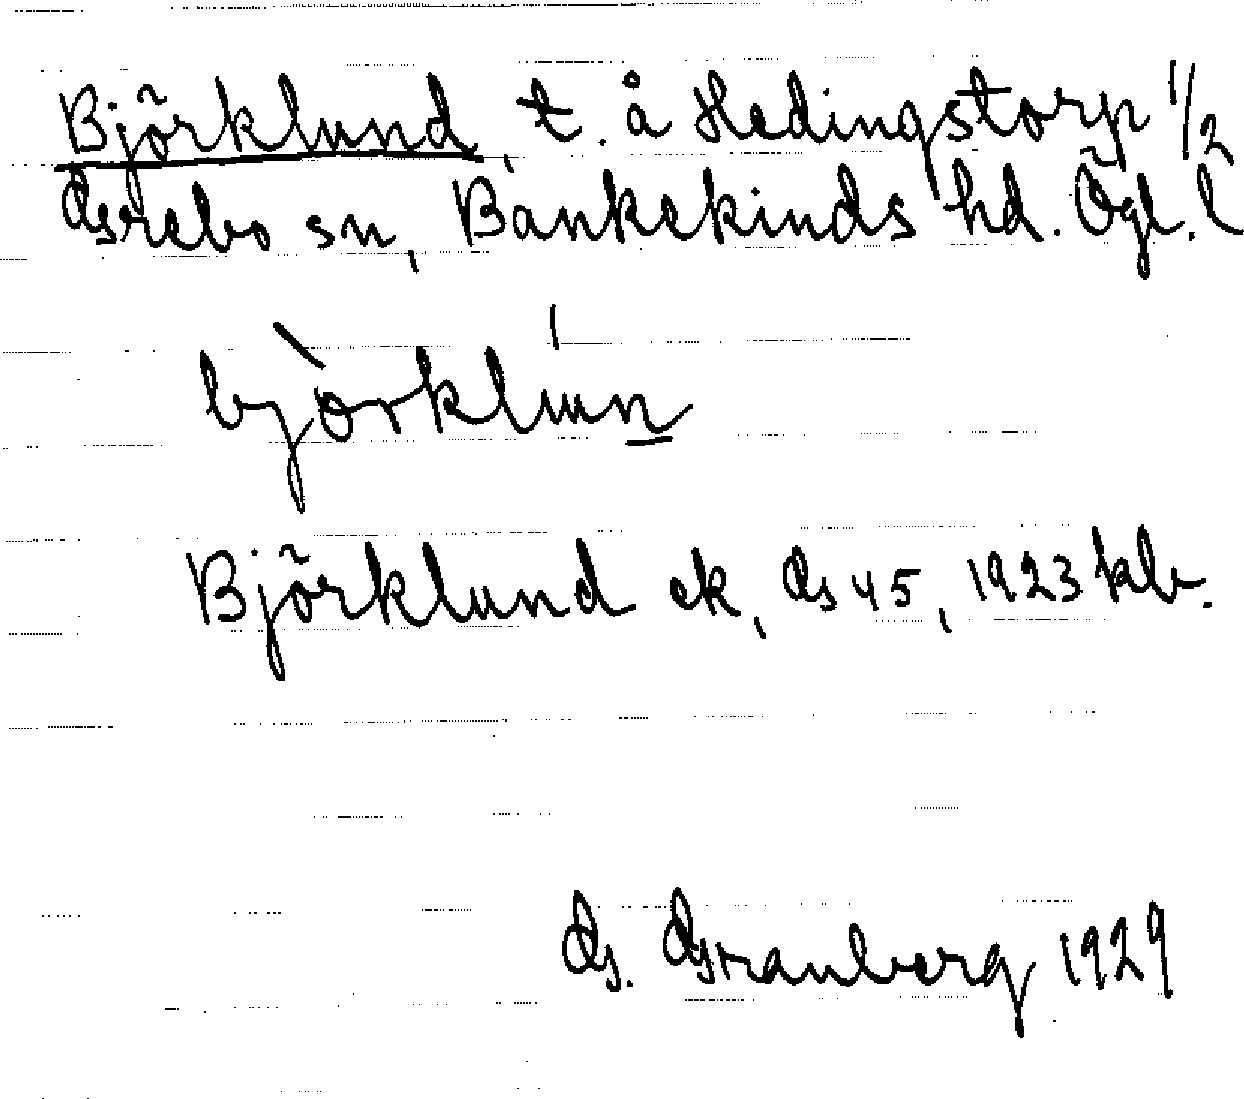 Björklund, t. å Hedingstorp 1/2
Grebo sn, Bankekinds hd. Ögl. l
b̀jörkĺun
Björklund ek, GS 45, 1923 kb.
G. Granberg 1929